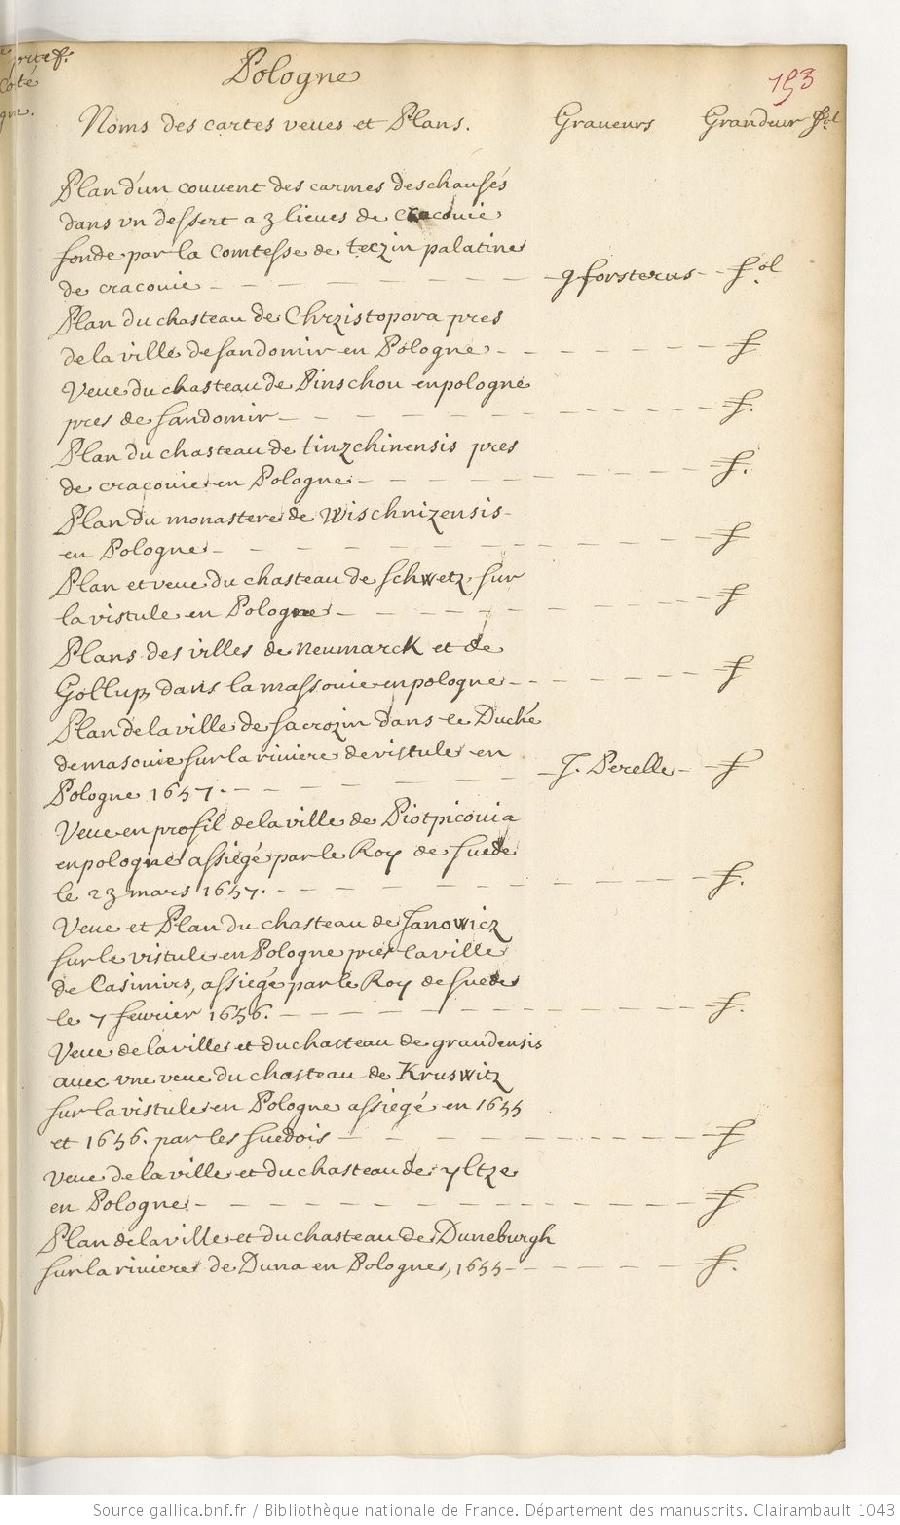 Pologne
193
Noms des cartes veues et Plans. Graueurs Grandeur fol
Plan d'un couuent des carmes deschausés
dans vn dessert a 3 lieues de cracouie
fonde par la comtesse de teczin palatine
de cracouie - g forsterus - fol
Plan du chasteau de Chrzistopora pres
de la ville de sandomir en Pologne - f
Veue du chasteau de Pinschou en pologne
pres de sandomir - f.
Plan du chasteau de tinzchinensis pres
de cracouie en Pologne - f.
Plan du monastere de Wischnizensis
en Pologne - f
Plan et veue du chasteau de schwetz sur
la vistule en Pologne - f
Plans des villes de neumarck et de
Gollup, dans la massouie en pologne - f
Plan de la ville de sacrozin dans le Duché
de masouie sur la riuiere de vistule en
Pologne 1657. - J. Perelle - f
Veue en profil de la ville de Piotpicouia
en pologne assiegé par le Roy de suede
le 23 mars 1657. - f.
Veue et Plan du chasteau de Janowicz
sur le vistule en Pologne pres la ville
de Casimirs, assiegé par le Roy de suede
le 7 feurier 1656. - f.
Veue de la ville et du chasteau de graudensis
auec vne veue du chasteau de Kruswitz
sur la vistule en Pologne assiegé en 1655
et 1656. par les suedois - f
Veue de la ville et du chasteau de yltze
en Pologne - f
Plan de la ville et du chasteau de Duneburgh
sur la riuiere de Duna en Pologne, 1655 - f.
Source gallica.bnf.fr / Bibliothèque nationale de France. Département des manuscrits. Clairambault 1043